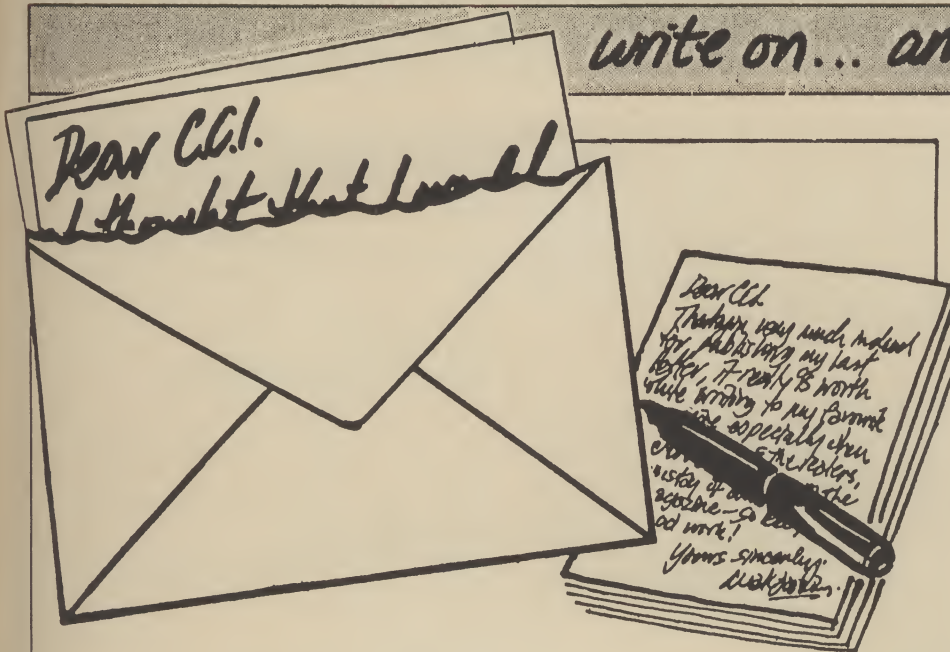 write on... an
Dear C.C.I.
I thought that I would
Dear CCI
Thankyou very much indeed
for publishing my last
letter, it really is worth
while writing to my favorite
especially when
the readers,
of the
agazine — so keep
od work!
Yours sincerely.